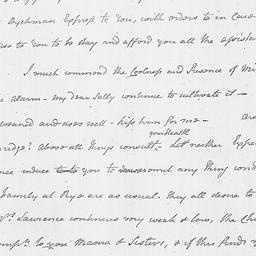 Dyckman Express to You, with orders to in Case
to You to to Day and afford you all the assistan
I much commend the Coolness and Presence of Mi
alarm - my dear Sally continue to cultivate it -
weaned and does well - kiss him for me - are
your Health
Above all things consult - Let neither Expe
nce induce you to any thing cond
Family at Rye are as usual. They all desire to
Lawrence continues very weak & low, the Chi
to your Mama & Sisters, & if this finds y